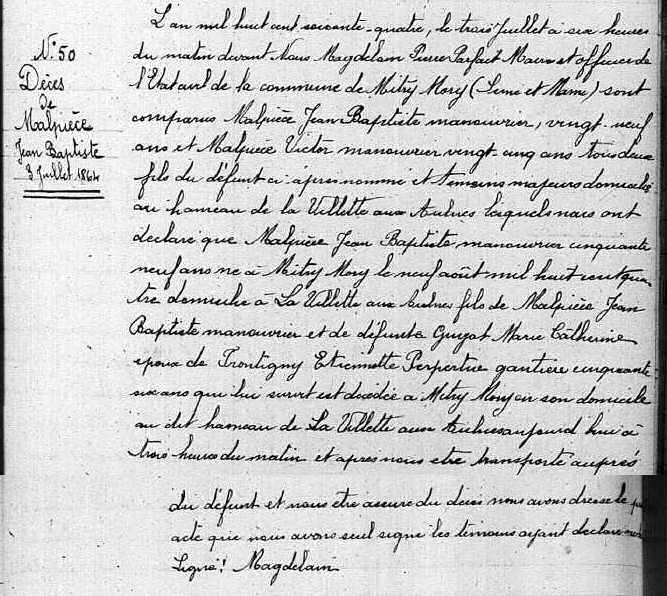 N° 50
Décès
de
Malpièce
Jean Baptiste
3 Juillet 1864
L'an mil huit cent soixante-quatre, le trois Juillet à six heures
du matin devant Nous Magdelain Pierre Parfait Maire et officier de
l'Etat civil de la commune de Mitry Mory (Seine et Marne) sont
comparus Malpièce Jean Baptiste manouvrier, vingt-neuf
ans et Malpiece Victor manouvrier vingt-cinq ans tous deux
fils du défunt ci-après nommé et témoins majeurs domiciliés
au hameau de la Villette aux Aulnes lesquels nous ont
déclaré que Malpièce Jean Baptiste manouvrier cinquante
neuf ans né à Mitry Mory le neuf août mil huit cent qua
tre domicilié à La Villette aux Aulnes fils de Malpièce Jean
Baptiste manouvrier et de défunte Guyot Marie Catherine
epoux de Trontigny Etiennette Perpertue gantière cinquante
six ans qui lui survit est décédée à Mitry Mory en son domicile
au dit hameau de La Villette aux Aulnes aujourd'hui à
trois heures du matin et apres nous etre transporté auprés
du défunt et nous etre assure du déces nous avons dresse le
acte que nous avons seul signé les temoins ayant déclaré
Signé! Magdelain